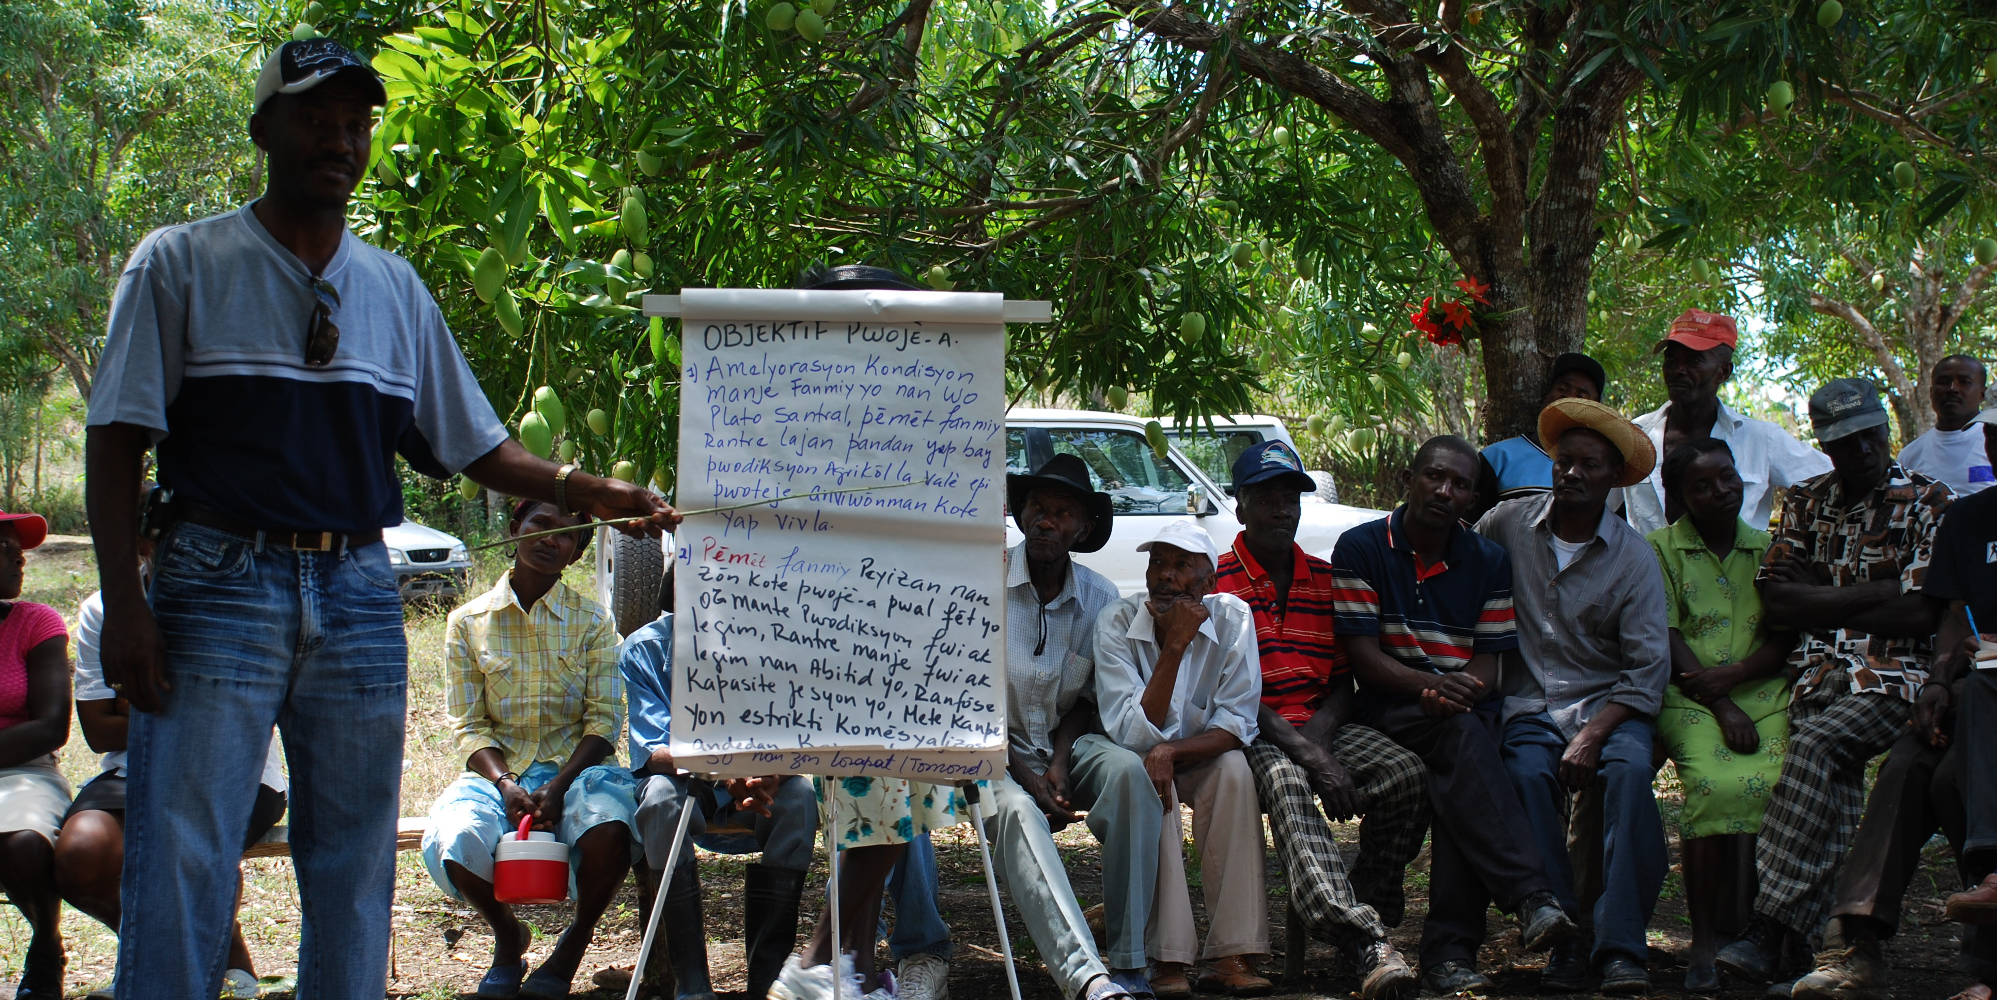 OBJEKTIF PWOJÈ-A.
1) Amelyorasyon Kondisyon
manje Fanmiy yo nan wo
Plato Santral, pèmèt fanmiy
Rantre lajan pandan yap bay
pwodiksyon Agrikòl la valè epi
pwoteje anviwònman kote
yap viv la.
2) Pèmèt fanmiy Peyizan nan
zòn kote pwojè-a pwal fèt yo
ogmante Pwodiksyon fwi ak
legim, Rantre manje fwi ak
legim nan Abitid yo, Ranfòse
Kapasite jesyon yo, Mete kanpe
yon estrikti Komèsyaliz
andedan
50 nan zòn Lorapat (Tomond)